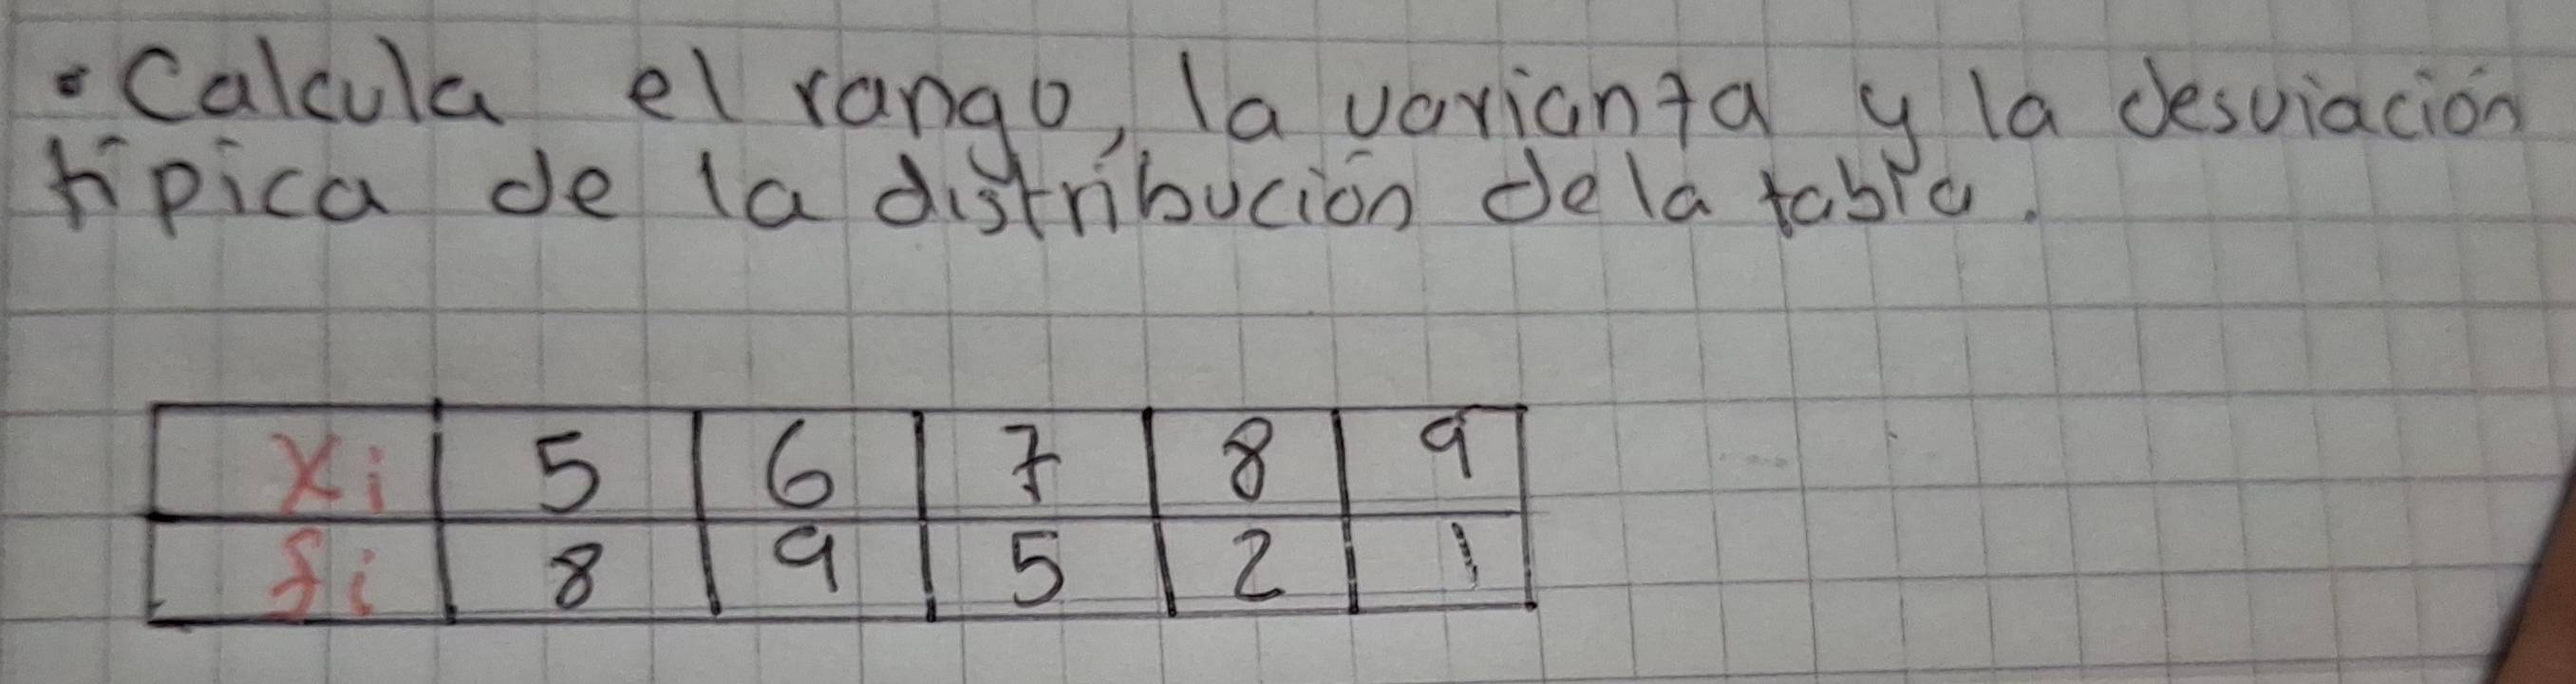 • Calcula el rango, la varianza y la desviación
típica de la distribución de la tabla.
xi 5 6 7 8 9
fi 8 9 5 2 1